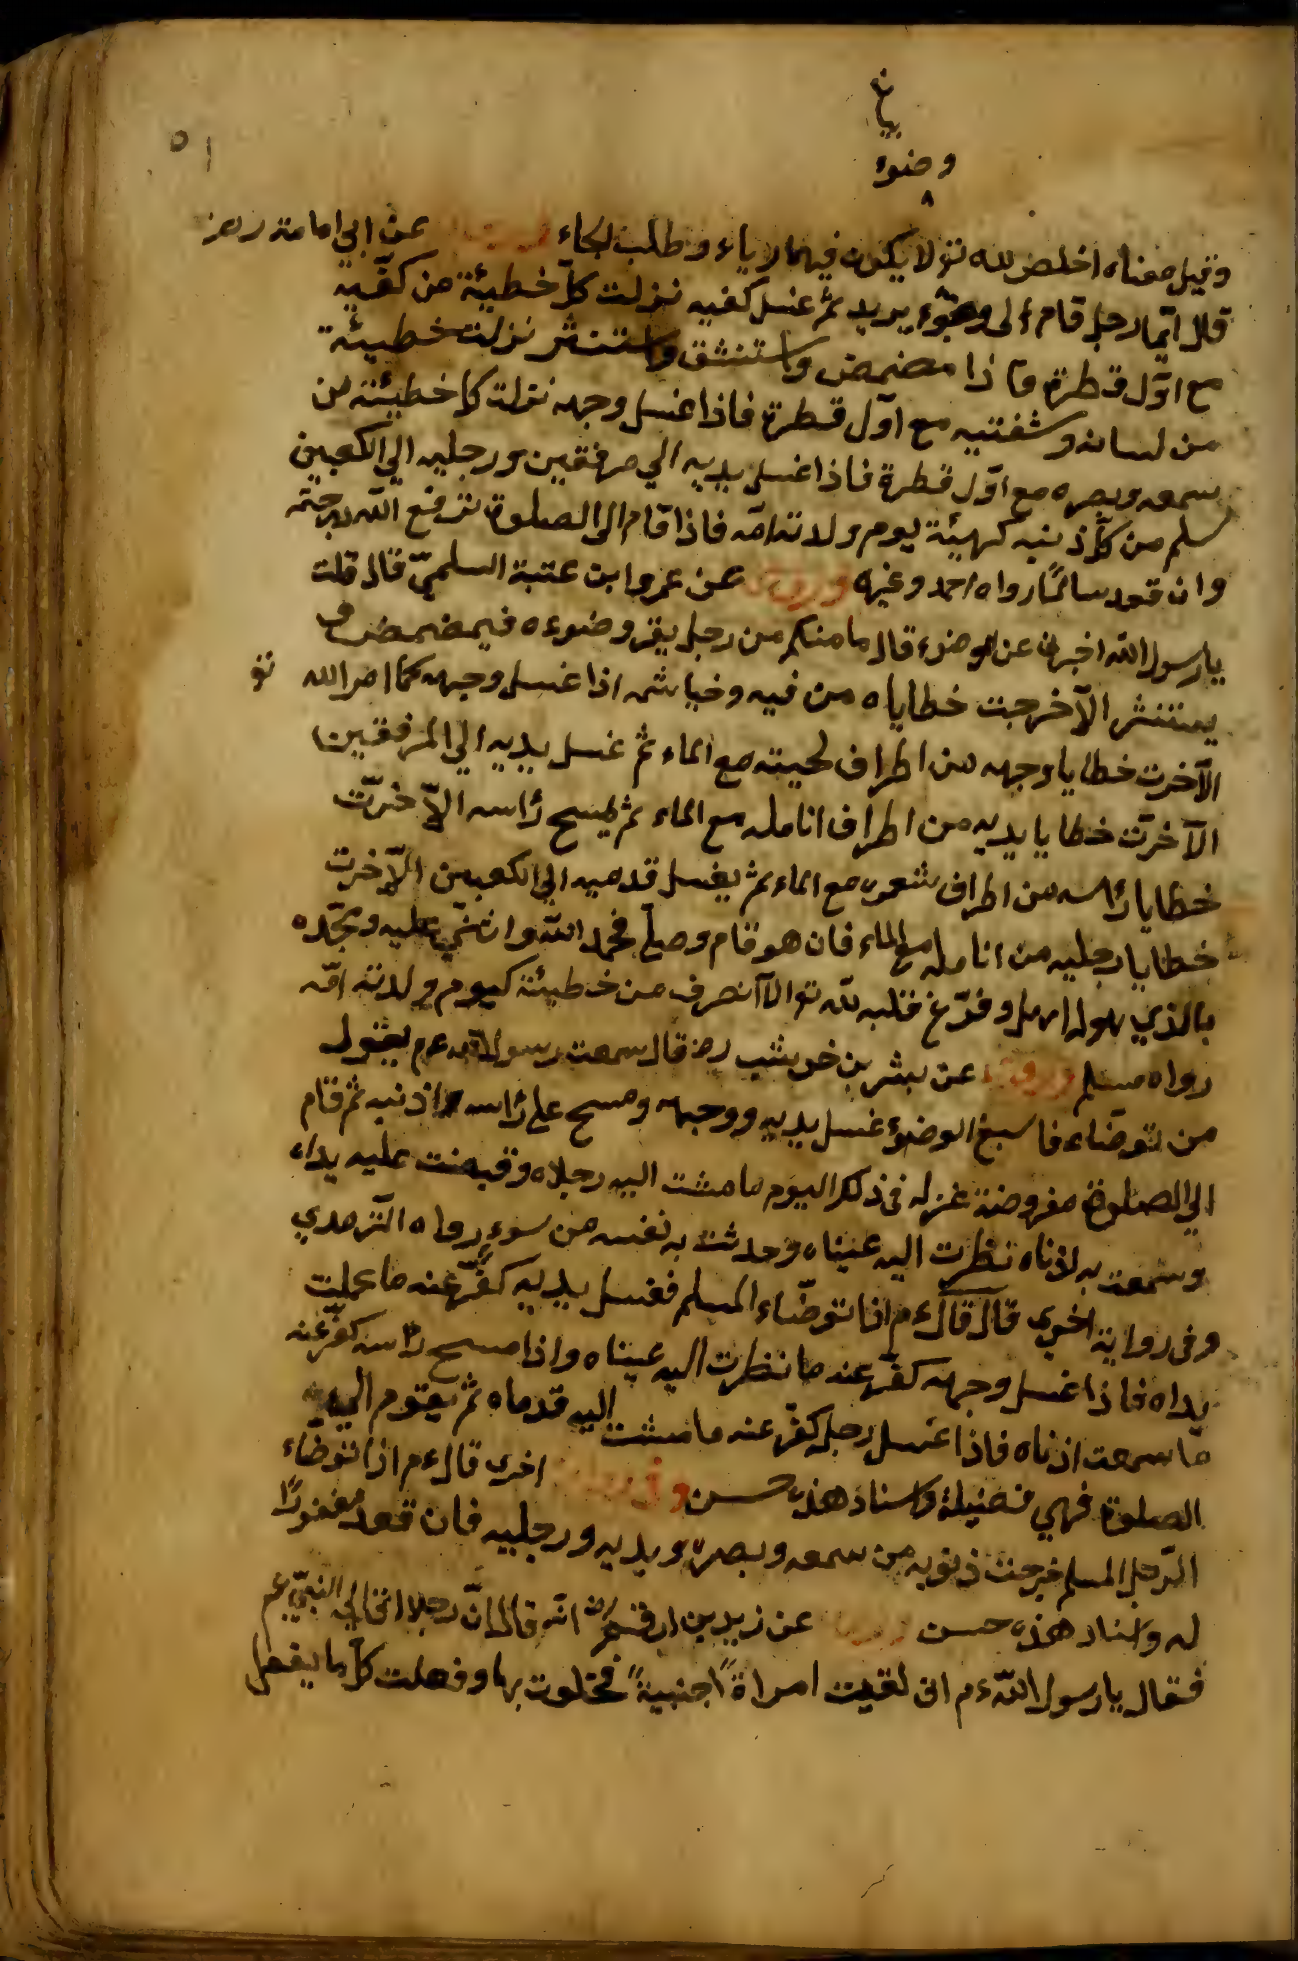 بيان
وضوء
٥١
وقيل معناه اخلص لله تو لا يكون فيهما رياء وطلب لجاء عن ابي امامة رضـ
قال ايّما رجل قام الى وضوء يريد ثم غسل كفيه نزلت كل خطيئة من كفّيه
مع اوّل قطرة فاذا مضمض واستنشق واستنثر نزلت خطيئة
من لسانه وشفتيه مع اوّل قطرة فاذا غسل وجهه نزلت كل خطيئة من
سمعه وبصره مع اوّل قطرة فاذا غسل يديه الي مرفقين ورجليه الي الكعبين
سلم من كلّ ذنبه كهيئة يوم ولدته امّه فاذا قام الى الصلوة ترفع الله درجته
وان قعد سالمًا رواه احمد وغيره وروي عن عمرو ابن عتبة السلميّ قال قلت
يا رسول الله اخبرني عن الوضوء قال ما منكم من رجل يقر وضوءه فيمضمض و
يستنثر الاّ خرجت خطاياه من فيه وخياشمه اذا غسل وجهه كما امر الله تو
الاّ خرت خطايا وجهه من اطراف لحيته مع الماء ثم غسل يديه الي المرفقين
الاّ خرّت خطايا يديه من اطراف انامله مع الماء ثم يمسح رأسه الاّ خرّت
خطايا رأسه من اطراف شعره مع الماء ثم يغسل قدميه الي الكعبين الاّ خرت
خطايا رجليه من انامله مع الماء فان هو قام وصلّي فحمد الله واثنيّ عليه ومجّده
بالذي هو له اهل وفرّغ قلبه لله تو الاّ انصرف من خطيئة كيوم ولدته امّه
رواه مسلم وروي عن بشر بن خوشب رضـ قال سمعت رسول الله عم يقول
من توضّاء فاسبغ الوضوء غسل يديه ووجهه ومسح على رأسه واذنيه ثم قام
الي الصلوة مفروضة غفر له في ذلك اليوم ما مشت اليه رجلاه وقبضت عليه يداه
وسمعت به اذناه نظرت اليه عيناه وحدثت به نفسه من سوء رواه الترمدي
وفي رواية اخرى قال قال عم اذا توضّاء المسلم فغسل يديه كفّر عنه ما عملت
يداه فاذا غسل وجهه كفّر عنه ما نظرت اليه عيناه واذا مسح رأسه كفّر عنه
ما سمعت اذناه فاذا غسل رجله كفّر عنه ما مشت اليه قدماه ثم يقوم الي
الصلوة فهي فضيلة واسناد هذه حسن وفي رواية اخرى قال عم اذا توضاء
الرّجل المسلم خرجت ذنوبه من سمعه وبصره ويديه ورجليه فان قعد مغفورًا
له واسناد هذه حسن وروي عن زيد بن ارقم رضـ انّه قال انّ رجلا اتي الي النبيّ عم
فقال يا رسول الله عم اني لقيت امراةً اجنبيةً فخلوت بها وفعلت كل ما يفعل